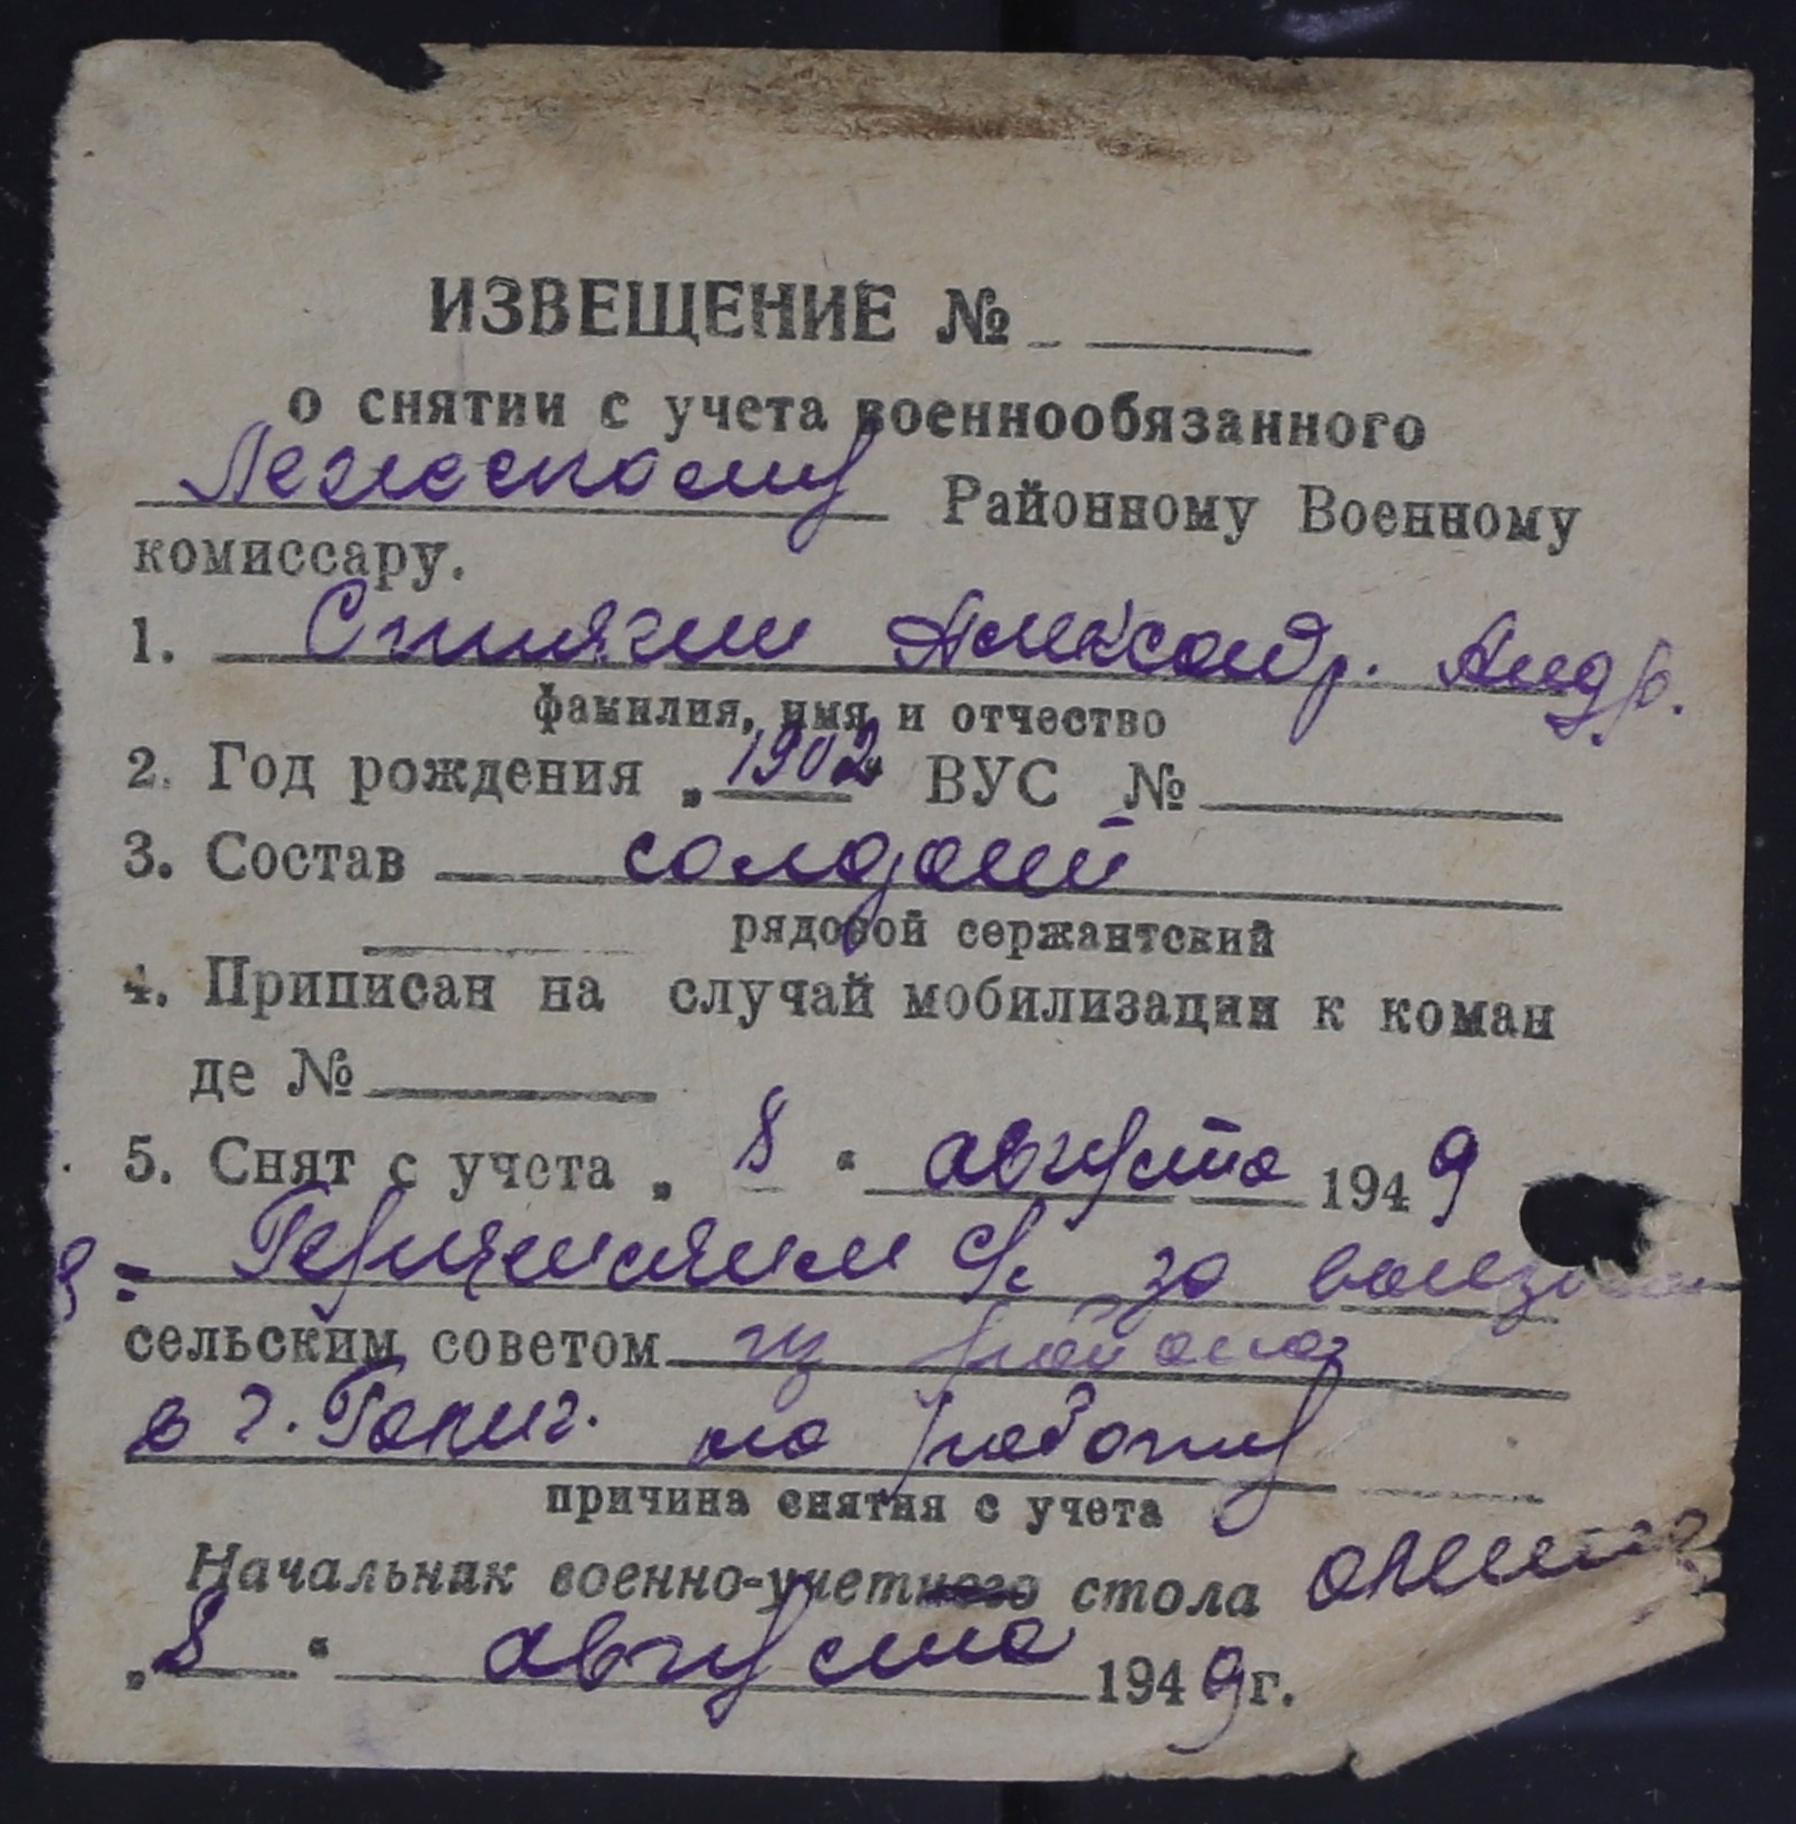 ИЗВЕЩЕНИЕ №
о снятии с учета военнообязанного
Лежескому Районному Военному
комиссару.
1. Синягин Александр. Андр.
фамилия, имя и отчество
2. Год рождения „1902“ ВУС №
3. Состав солдат
рядовой сержантский
4. Приписан на случай мобилизации к коман
де №
5. Снят с учета „ 8 “ августа 1949
за
сельским советом из района
в г. на работу
причина снятия с учета
Начальник военно-учетного стола
„8“ августа 1949г.